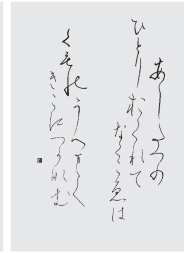 あしたつの
ひとりおくれて
なくこゑは
くものうへまて
きこえつかなむ